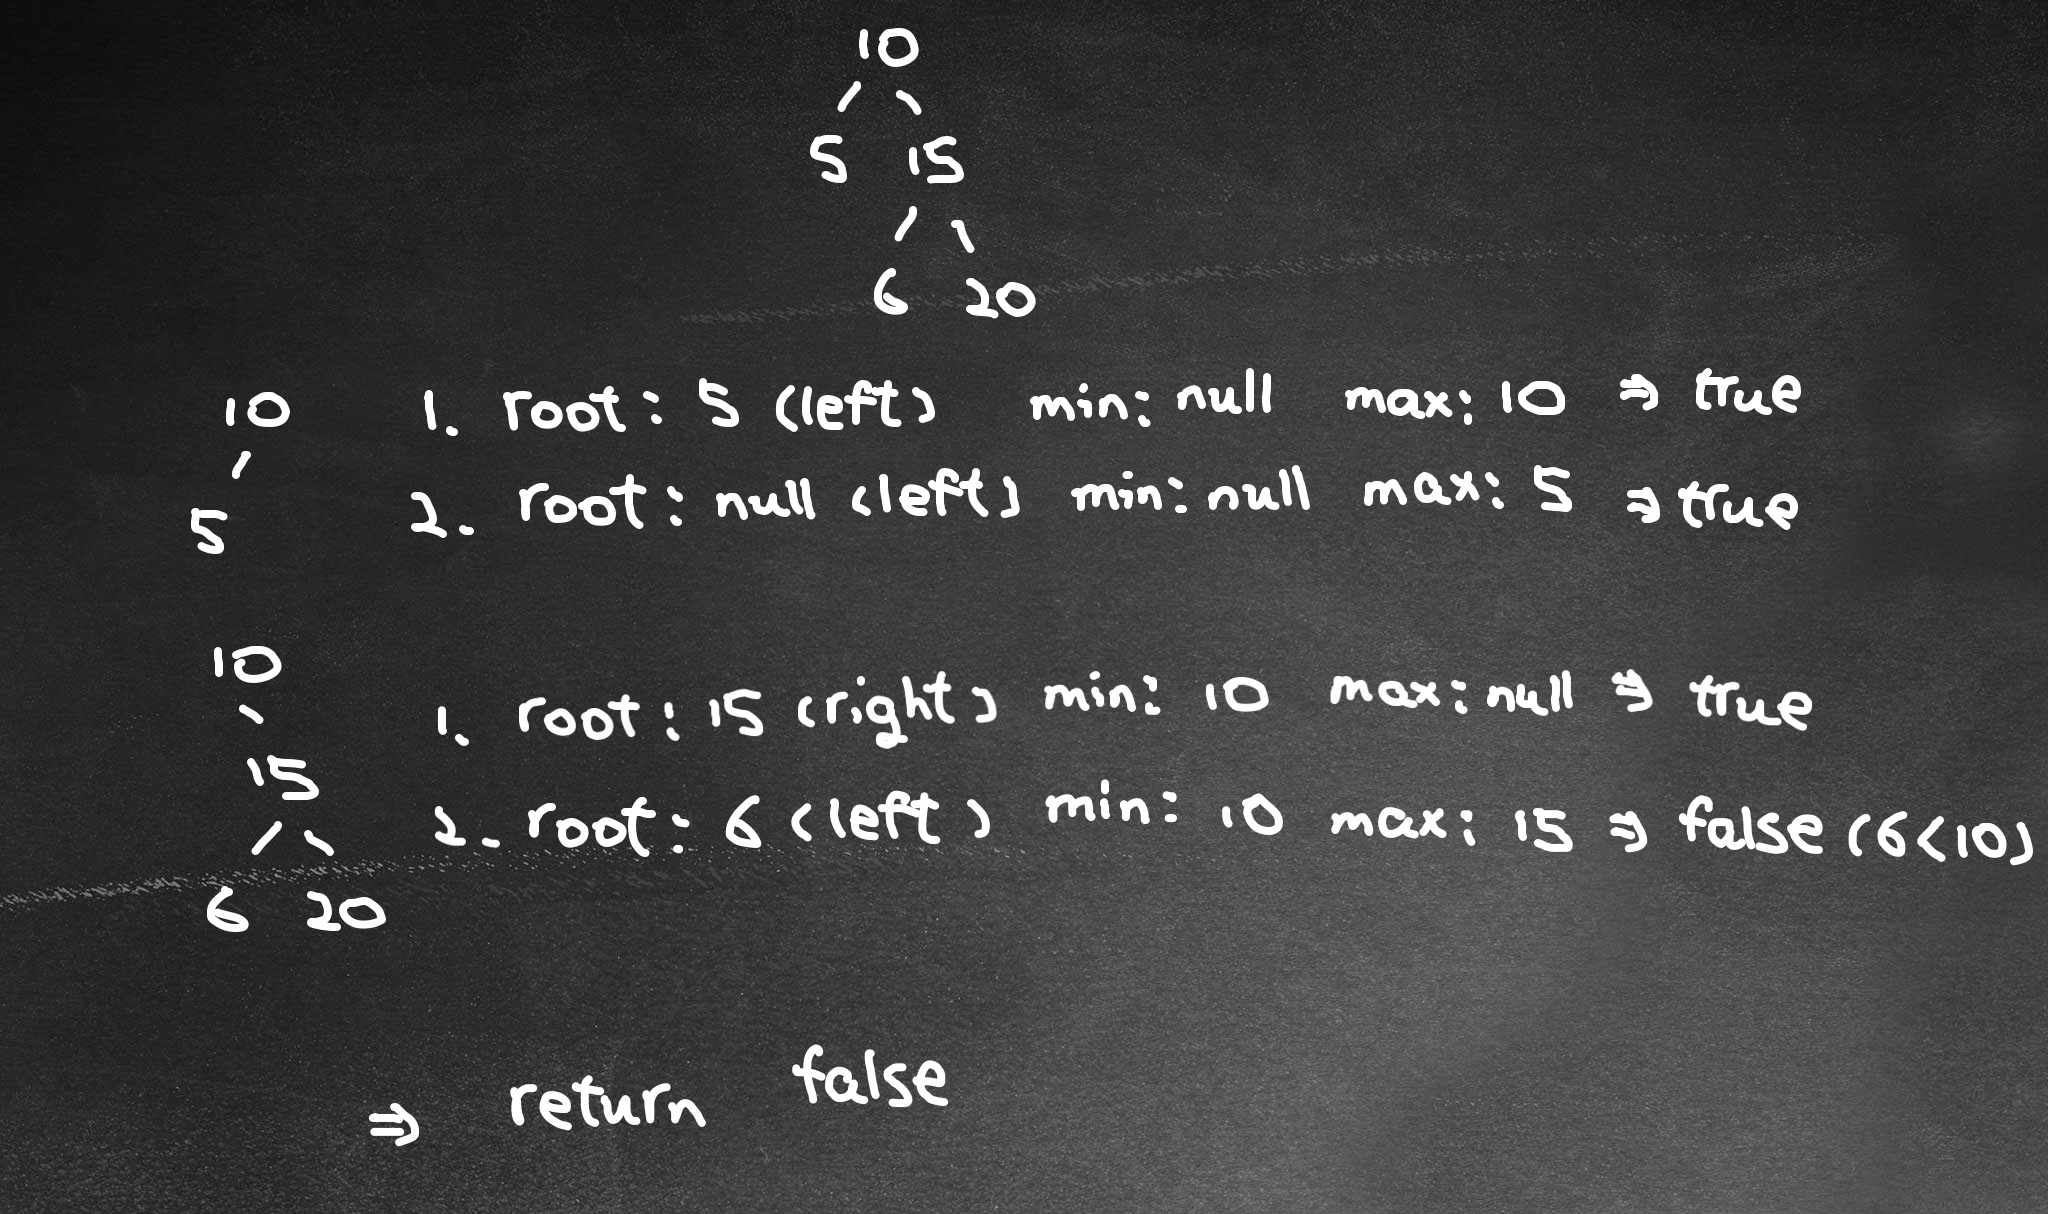 10
/ \
5 15
/ \
6 20
10
/
5
1. root: 5 (left) min: null max: 10 ⇒ true
2. root: null (left) min: null max: 5 ⇒ true
10
\
15
/ \
6 20
1. root: 15 (right) min: 10 max: null ⇒ true
2. root: 6 (left) min: 10 max: 15 ⇒ false (6<10)
⇒ return false